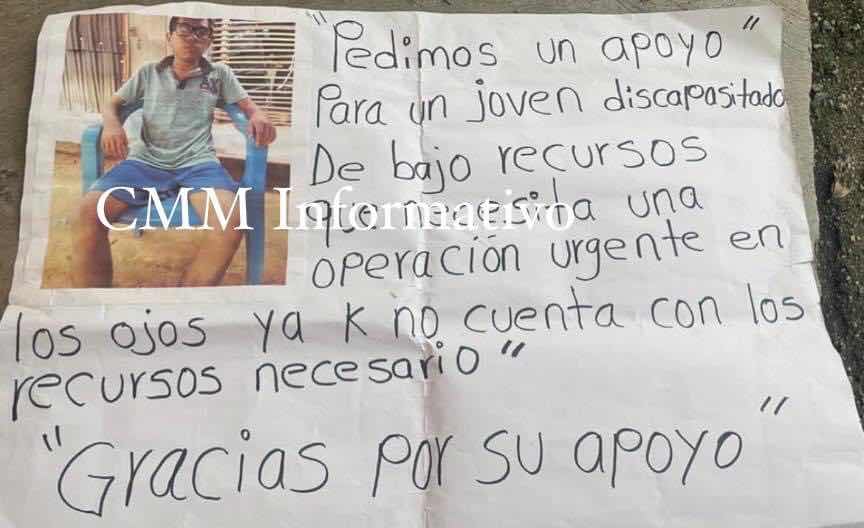 "Pedimos un apoyo"
Para un joven discapasitado
De bajo recursos
que necesita una
operación urgente en
los ojos ya k no cuenta con los
recursos necesario"
"Gracias por su apoyo"
CMM Informativo